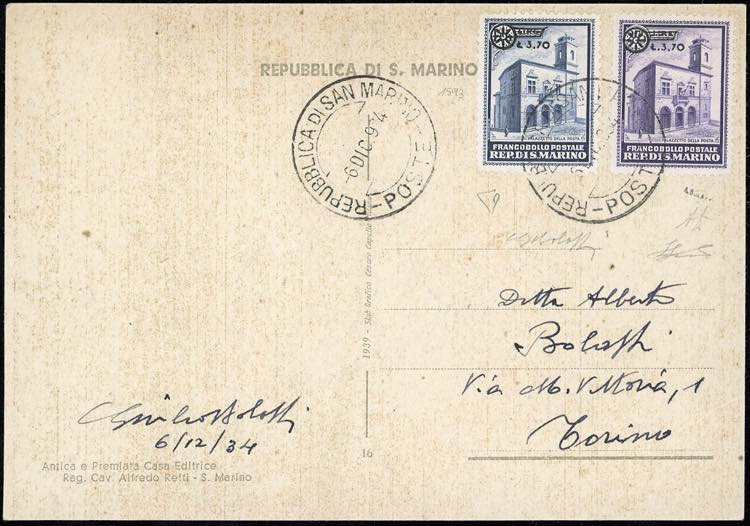 REPUBBLICA DI S. MARINO
1593
Ł. 3,70
PALAZZETTO DELLA POSTA
FRANCOBOLLO POSTALE
REP. DI S. MARINO
Ł. 3,70
PALAZZETTO DELLA POSTA
FRANCOBOLLO POSTALE
REP. DI S. MARINO
REPUBBLICA DI SAN MARINO
7
6 DIC 94
-POSTE-
-POSTE
Ditta Alberto
Bolaffi
Via M. Vittoria, 1
Torino
Giulio Bolaffi
6/12/34
Antica e Premiata Casa Editrice
Rag. Cav. Alfredo Reffi - S. Marino
16
1939 - Stab Grafico Cesare Capello